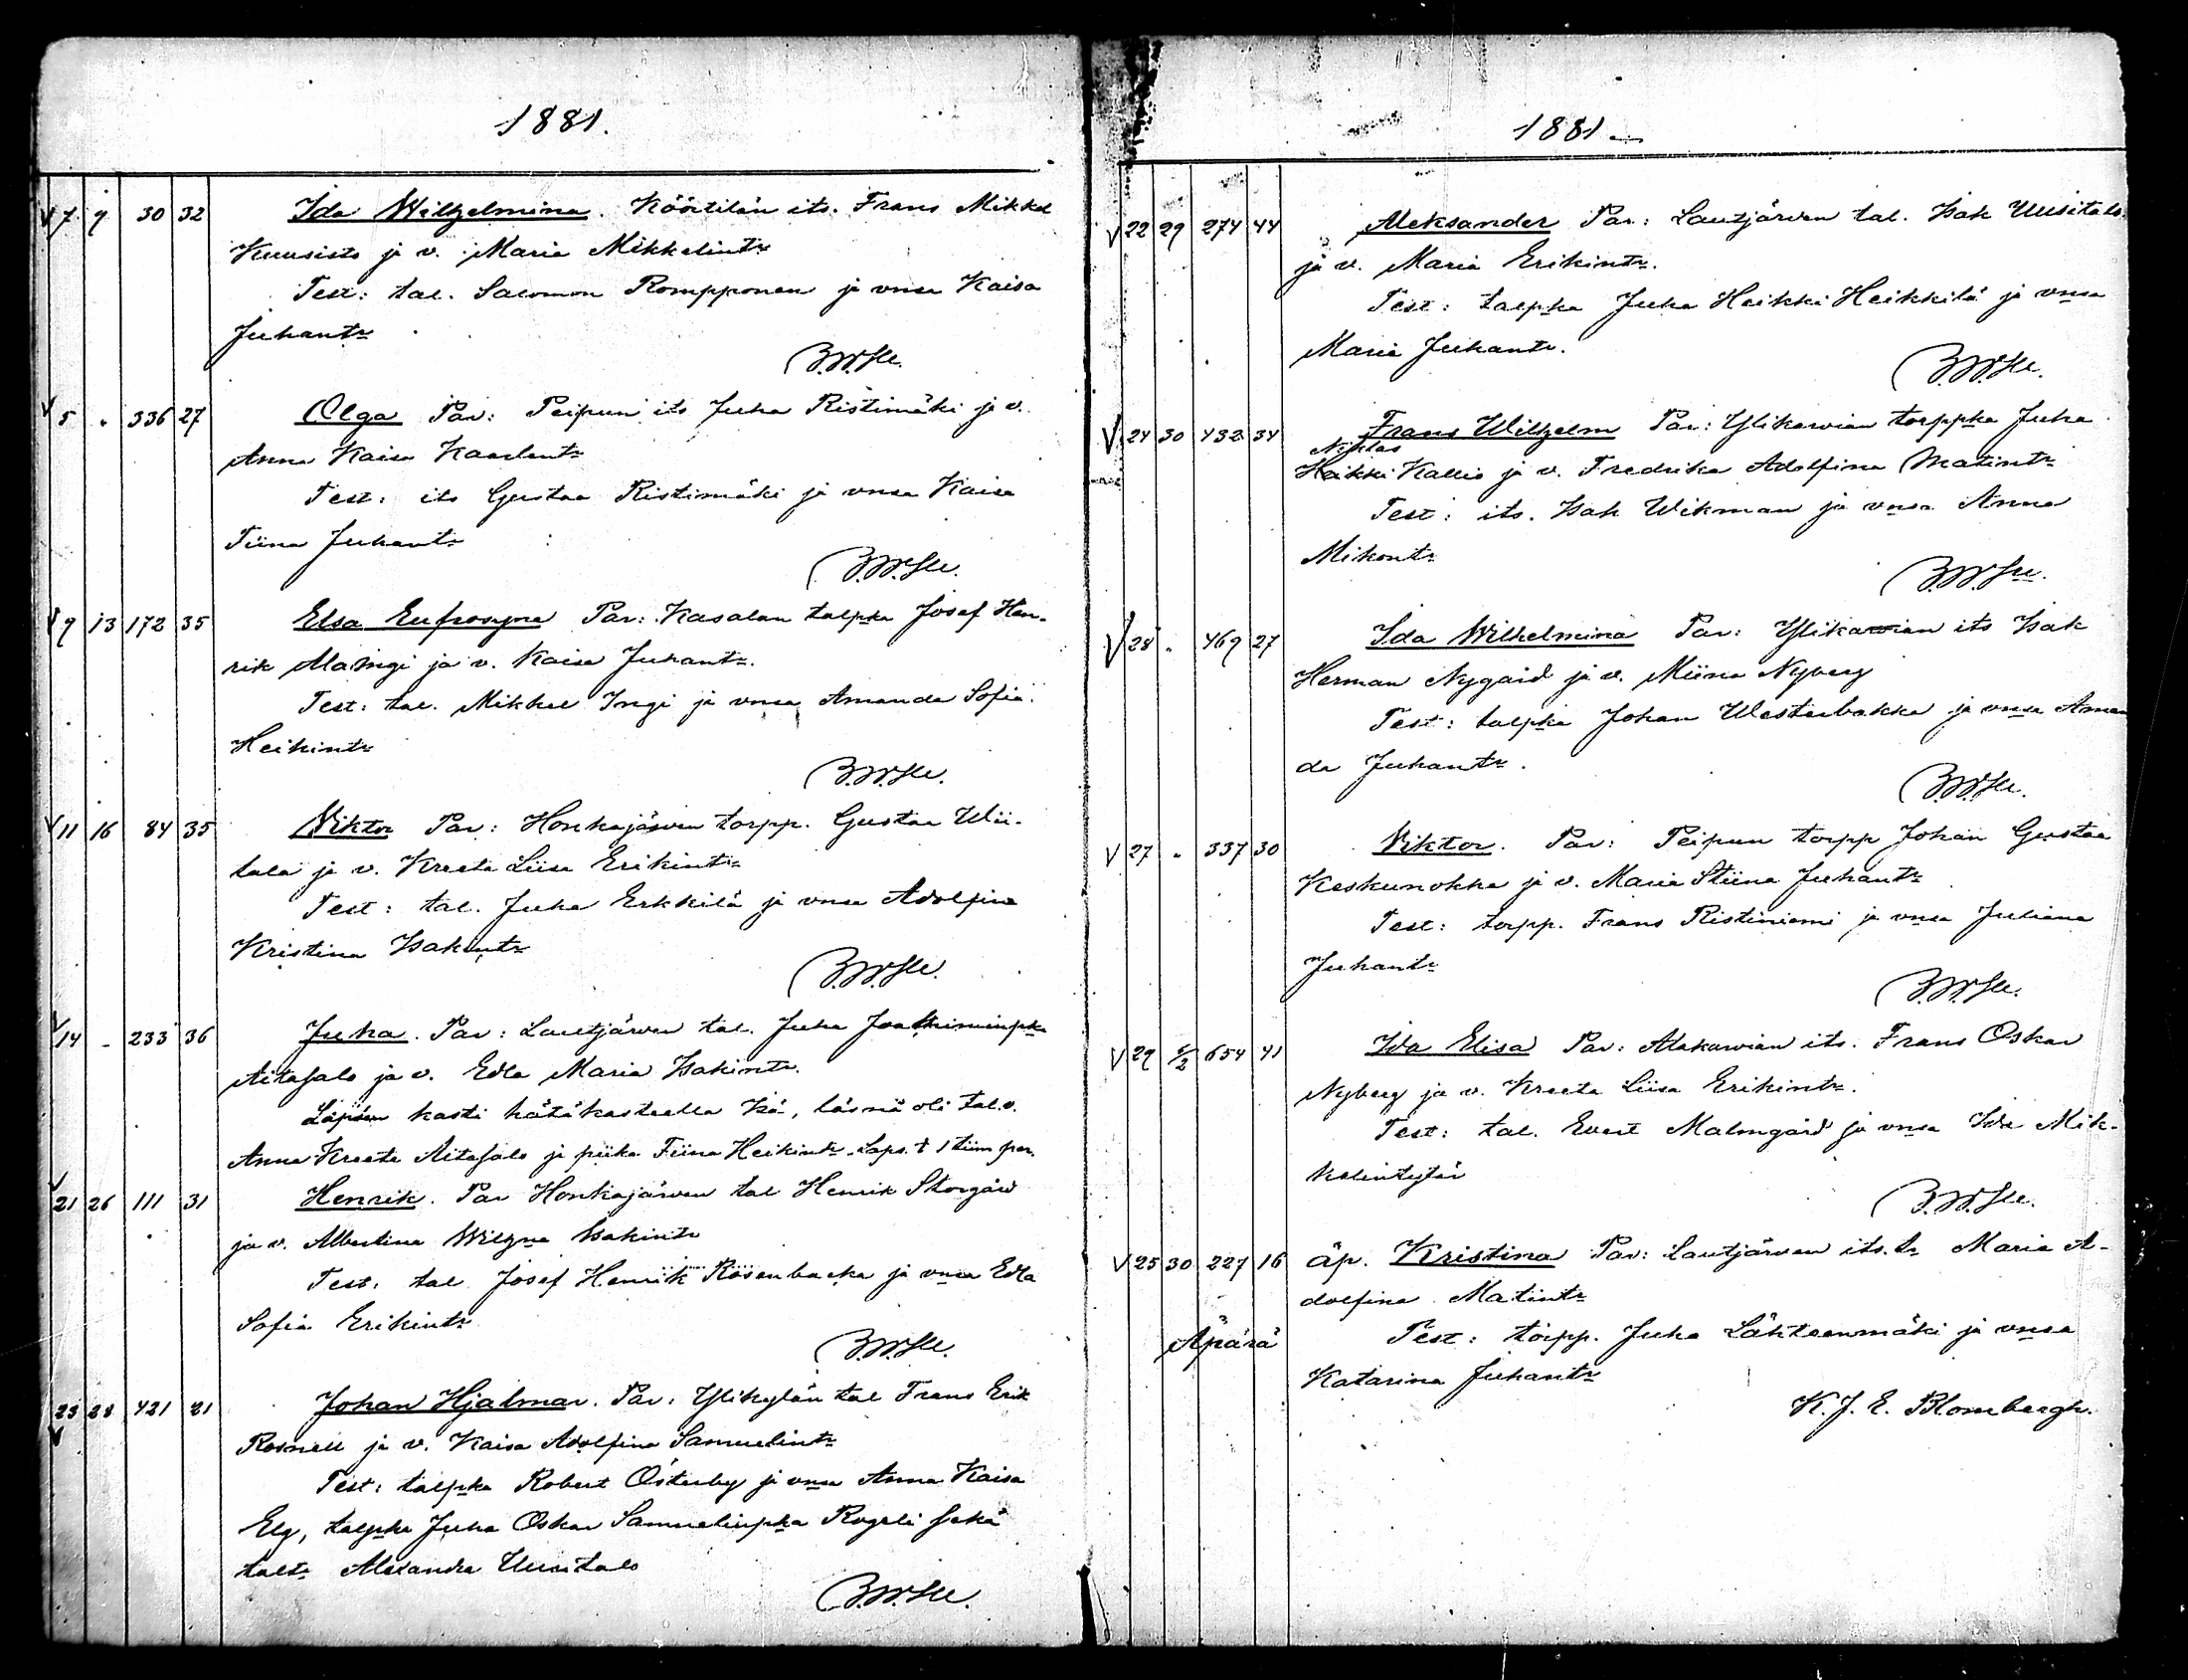 1881.
7 9 30 32 Ida Wilhelmina. Köörtilän its. Frans Mikkel
Kuusisto ja v. Maria Mikkelintr
Test: tal. Salomon Rompponen ja vnsa Kaisa
Juhantr
5 " 336 27 Olga Van: Peipun its Juha Ristimäki ja v.
Anna Kaisa Kaarlentr
Test: its Gustaa Ristimäki ja vnsa Kaisa
Tiina Juhantr
9 13 172 35 Elsa Eufrosyne Van: Kasalan talpka Josef Hen-
rik Ala Ingi ja v. Kaisa Juhantr.
Test: tal. Mikkel Ingi ja vnsa Amanda Sofia
Heikintr
11 16 84 35 Viktor Van: Honkajärven torpp. Gustaa Wii-
tala ja v. Kreeta Liisa Erikintr
Test: tal. Juha Erkkilä ja vnsa Adolfina
Kristina Isakintr
14 " 233 36 Juha. Van: Lautjärven tal. Juha Joakiminpka
Aitasalo ja v. Edla Maria Isakintr.
Lapsen kasti hätäkasteella Isä, läsnä oli tal.v.
Anna Kreeta Aitasalo ja piika Tiina Heikintr. Laps. † 1 tiim per.
21 26 111 31 Henrik. Van Honkajärven tal Henrik Storgård
ja v. Albertina Wilhna Isakintr
Test: tal Josef Henrik Rosenbacka ja vnsa Edla
Sofia Erikintr
23 28 421 21 Johan Hjalmar. Van: Ylikylän tal Frans Erik
Rosnell ja v. Kaisa Adolfina Samuelintr
Test: talpka Robert Österby ja vnsa Anna Kaisa
Elg, talpka Juha Oskar Samuelinpka Rogeli sekä
taltr Alexandra Uusitalo
1881.
22 29 274 44 Aleksander Van: Lautjärven tal. Isak Uusitalo
ja v. Maria Erikintr.
Test: talpka Juha Heikki Heikkilä ja vnsa
Maria Juhantr.
24 30 432 34 Frans Wilhelm Van: Ylikarvian torppka Juha
Niklas
Heikki Kallio ja v. Fredrika Adolfina Matintr
Test: its. Isak Wikman ja vnsa Anna
Mikontr
28 " 469 27 Ida Wilhelmina Van: Ylikarvian its Isak
Herman Nygård ja v. Miina Nyberg
Test: talpka Johan Westerbakka ja vnsa Aman
da Juhantr.
27 " 337 30 Viktor. Van: Peipun torpp Johan Gustaa
Keskunokka ja v. Maria Stiina Juhantr
Test: torpp. Frans Ristiniemi ja vnsa Juliana
Juhantr
29 654 41 Ida Elisa Van: Alakarvian its. Frans Oskar
Nyberg ja v. Kreeta Liisa Erikintr.
Test: tal. Evert Malmgård ja vnsa Ida Mik-
kelintytär
25 30 227 16 äp. Kristina Van: Lautjärven its.tr Maria A-
dolfina Matintr
Äpärä Test: torpp. Juha Lähteenmäki ja vnsa
Katarina Juhantr
K. J. E. Blombergh.